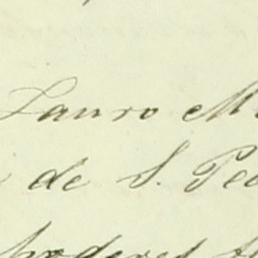 Lauro M
de S. Pe
poderes